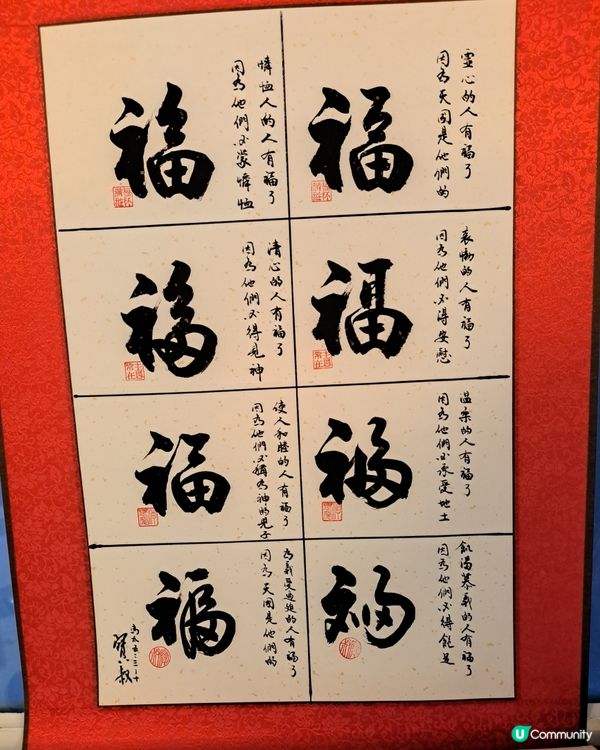 虛心的人有福了
因為天國是他們的
福
哀慟的人有福了
因為他們必得安慰
福
溫柔的人有福了
因為他們必承受地土
福
飢渴慕義的人有福了
因為他們必得飽足
福
憐恤人的人有福了
因為他們必蒙憐恤
福
清心的人有福了
因為他們必得見神
福
使人和睦的人有福了
因為他們必稱為神的兒子
福
為義受逼迫的人有福了
因為天國是他們的
福
馬太五:三-十
U Community